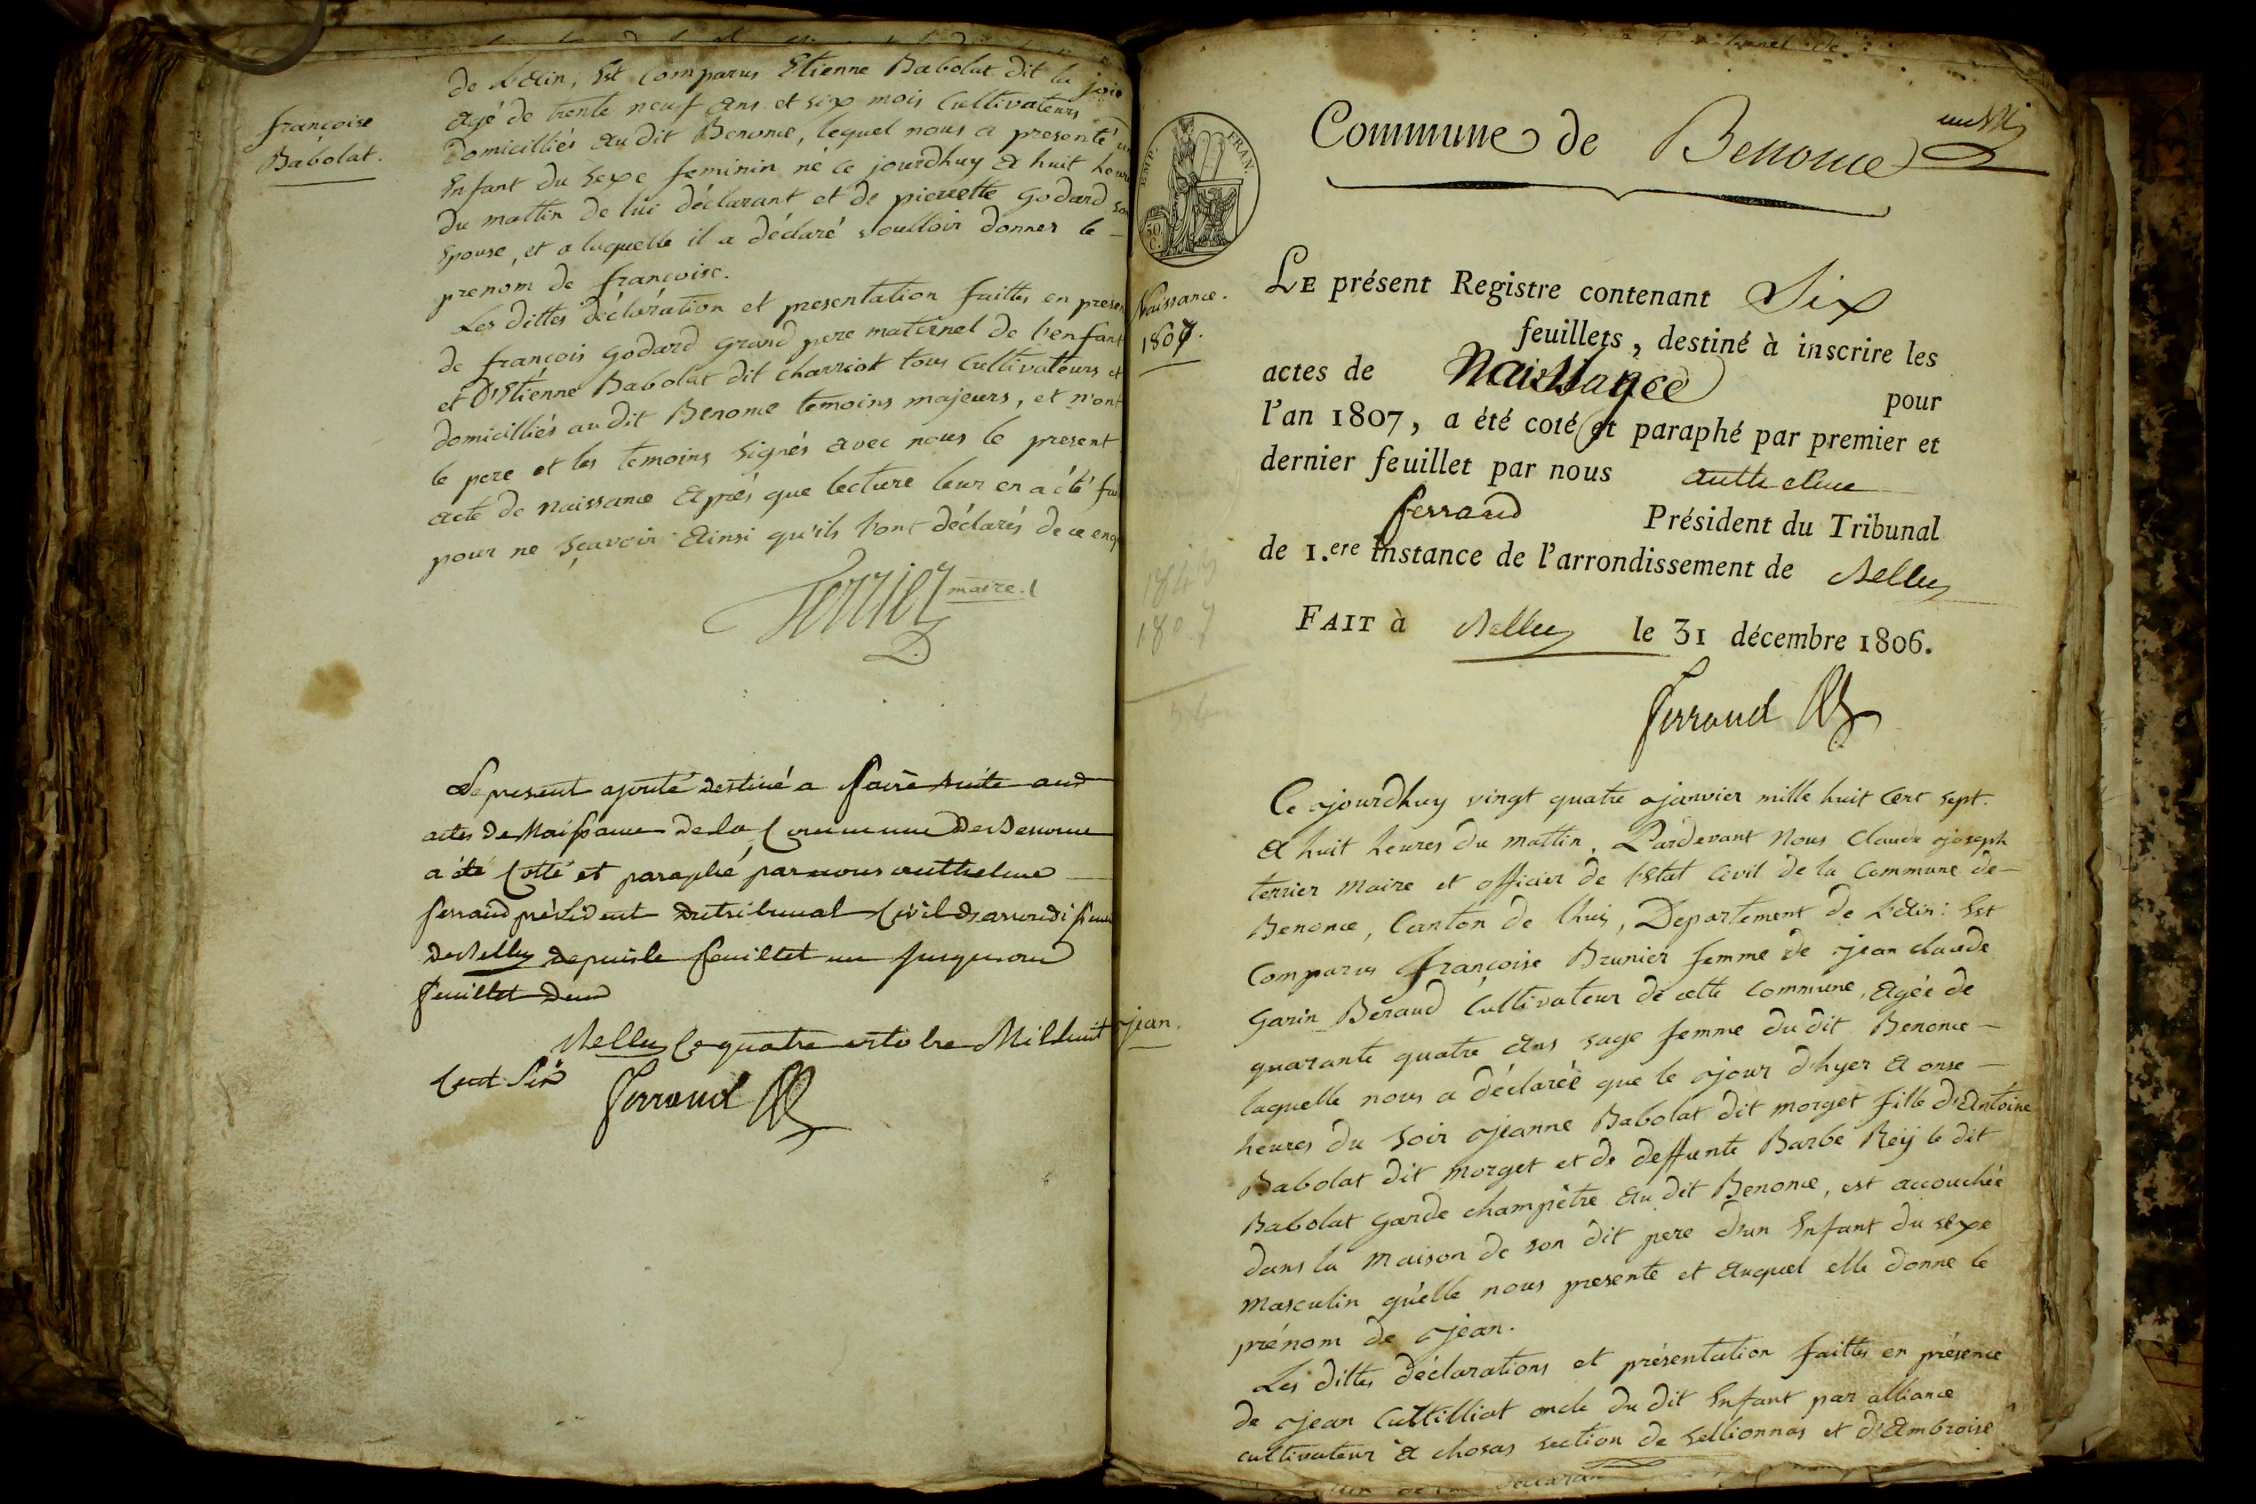 de L'Ain; Est Comparus Etienne Babolat dit la joie
agé de trente neuf ans et six mois Cultivateurs
domicilliés audit Benonce, lequel nous a presenté un
Enfant du Sexe feminin né ce jourdhuy a huit heure
du mattin de lui déclarant et de pierrette Godard son
Epouse, et a laquelle il a déclaré voulloir donner le
prenom de françoise.
françoise
Babolat.
Les dittes déclaration et presentation faittes en presen
de françois Godard Grand pere maternel de l'enfant
et D'Etienne Babolat dit charriot tous Cultivateurs et
domicilliés audit Benonce temoins majeurs, et n'ont
le pere et les temoins signés avec nous le present
acte de naissance après que lecture leur en a été fai
pour ne sçavoir ainsi qu'ils l'ont déclarés de ce enq
Terrier maire.
Le present ajouté destiné a faire suite aux
actes de Naissance de la Commune de Benonce
a été Cotté et paraphé par nous anthelme
ferrand président du tribunal Civil d'arrondissem
de Belley depuis le feuillet un jusqu'au
feuillet deux
Belley le quatre octobre Mil huit
Cent Six
Ferrand
Commune de Benonce
EMP. FRAN.
50 C.
Naissance.
1807.
LE présent Registre contenant Six
feuillets, destiné à inscrire les
actes de Naissance pour
l'an 1807, a été coté et paraphé par premier et
dernier feuillet par nous anthelme
ferrand Président du Tribunal
de 1.ere instance de l'arrondissement de Belley
FAIT à Belley le 31 décembre 1806.
Ferrand
1807
Ce ojourdhuy vingt quatre janvier mille huit Cent sept.
a huit heures du mattin. Pardevant Nous Claude joseph
terrier Maire et officier de l'Etat Civil de la Commune de
Benonce, Canton de lhuis, Departement de L'Ain: Est
Comparus françoise Brunier femme de jean claude
Garin Béraud Cultivateur de cette Commune, agée de
quarante quatre ans sage femme du dit Benonce
laquelle nous a déclarée que le jour d'hyer a onse
heures du soir jeanne Babolat dit morget fille d'Antoine
Babolat dit morget et de deffunte Barbe Reÿ le dit
Babolat Garde champêtre au dit Benonce, est accouchée
dans la maison de son dit pere d'un Enfant du sexe
masculin qu'elle nous presente et auquel elle donne le
prénom de jean.
jean.
Les dittes déclarations et présentation faittes en présence
de jean Cuttilliat oncle du dit Enfant par alliance
cultivateur a chosas section de Sellionnas et d'Ambroise